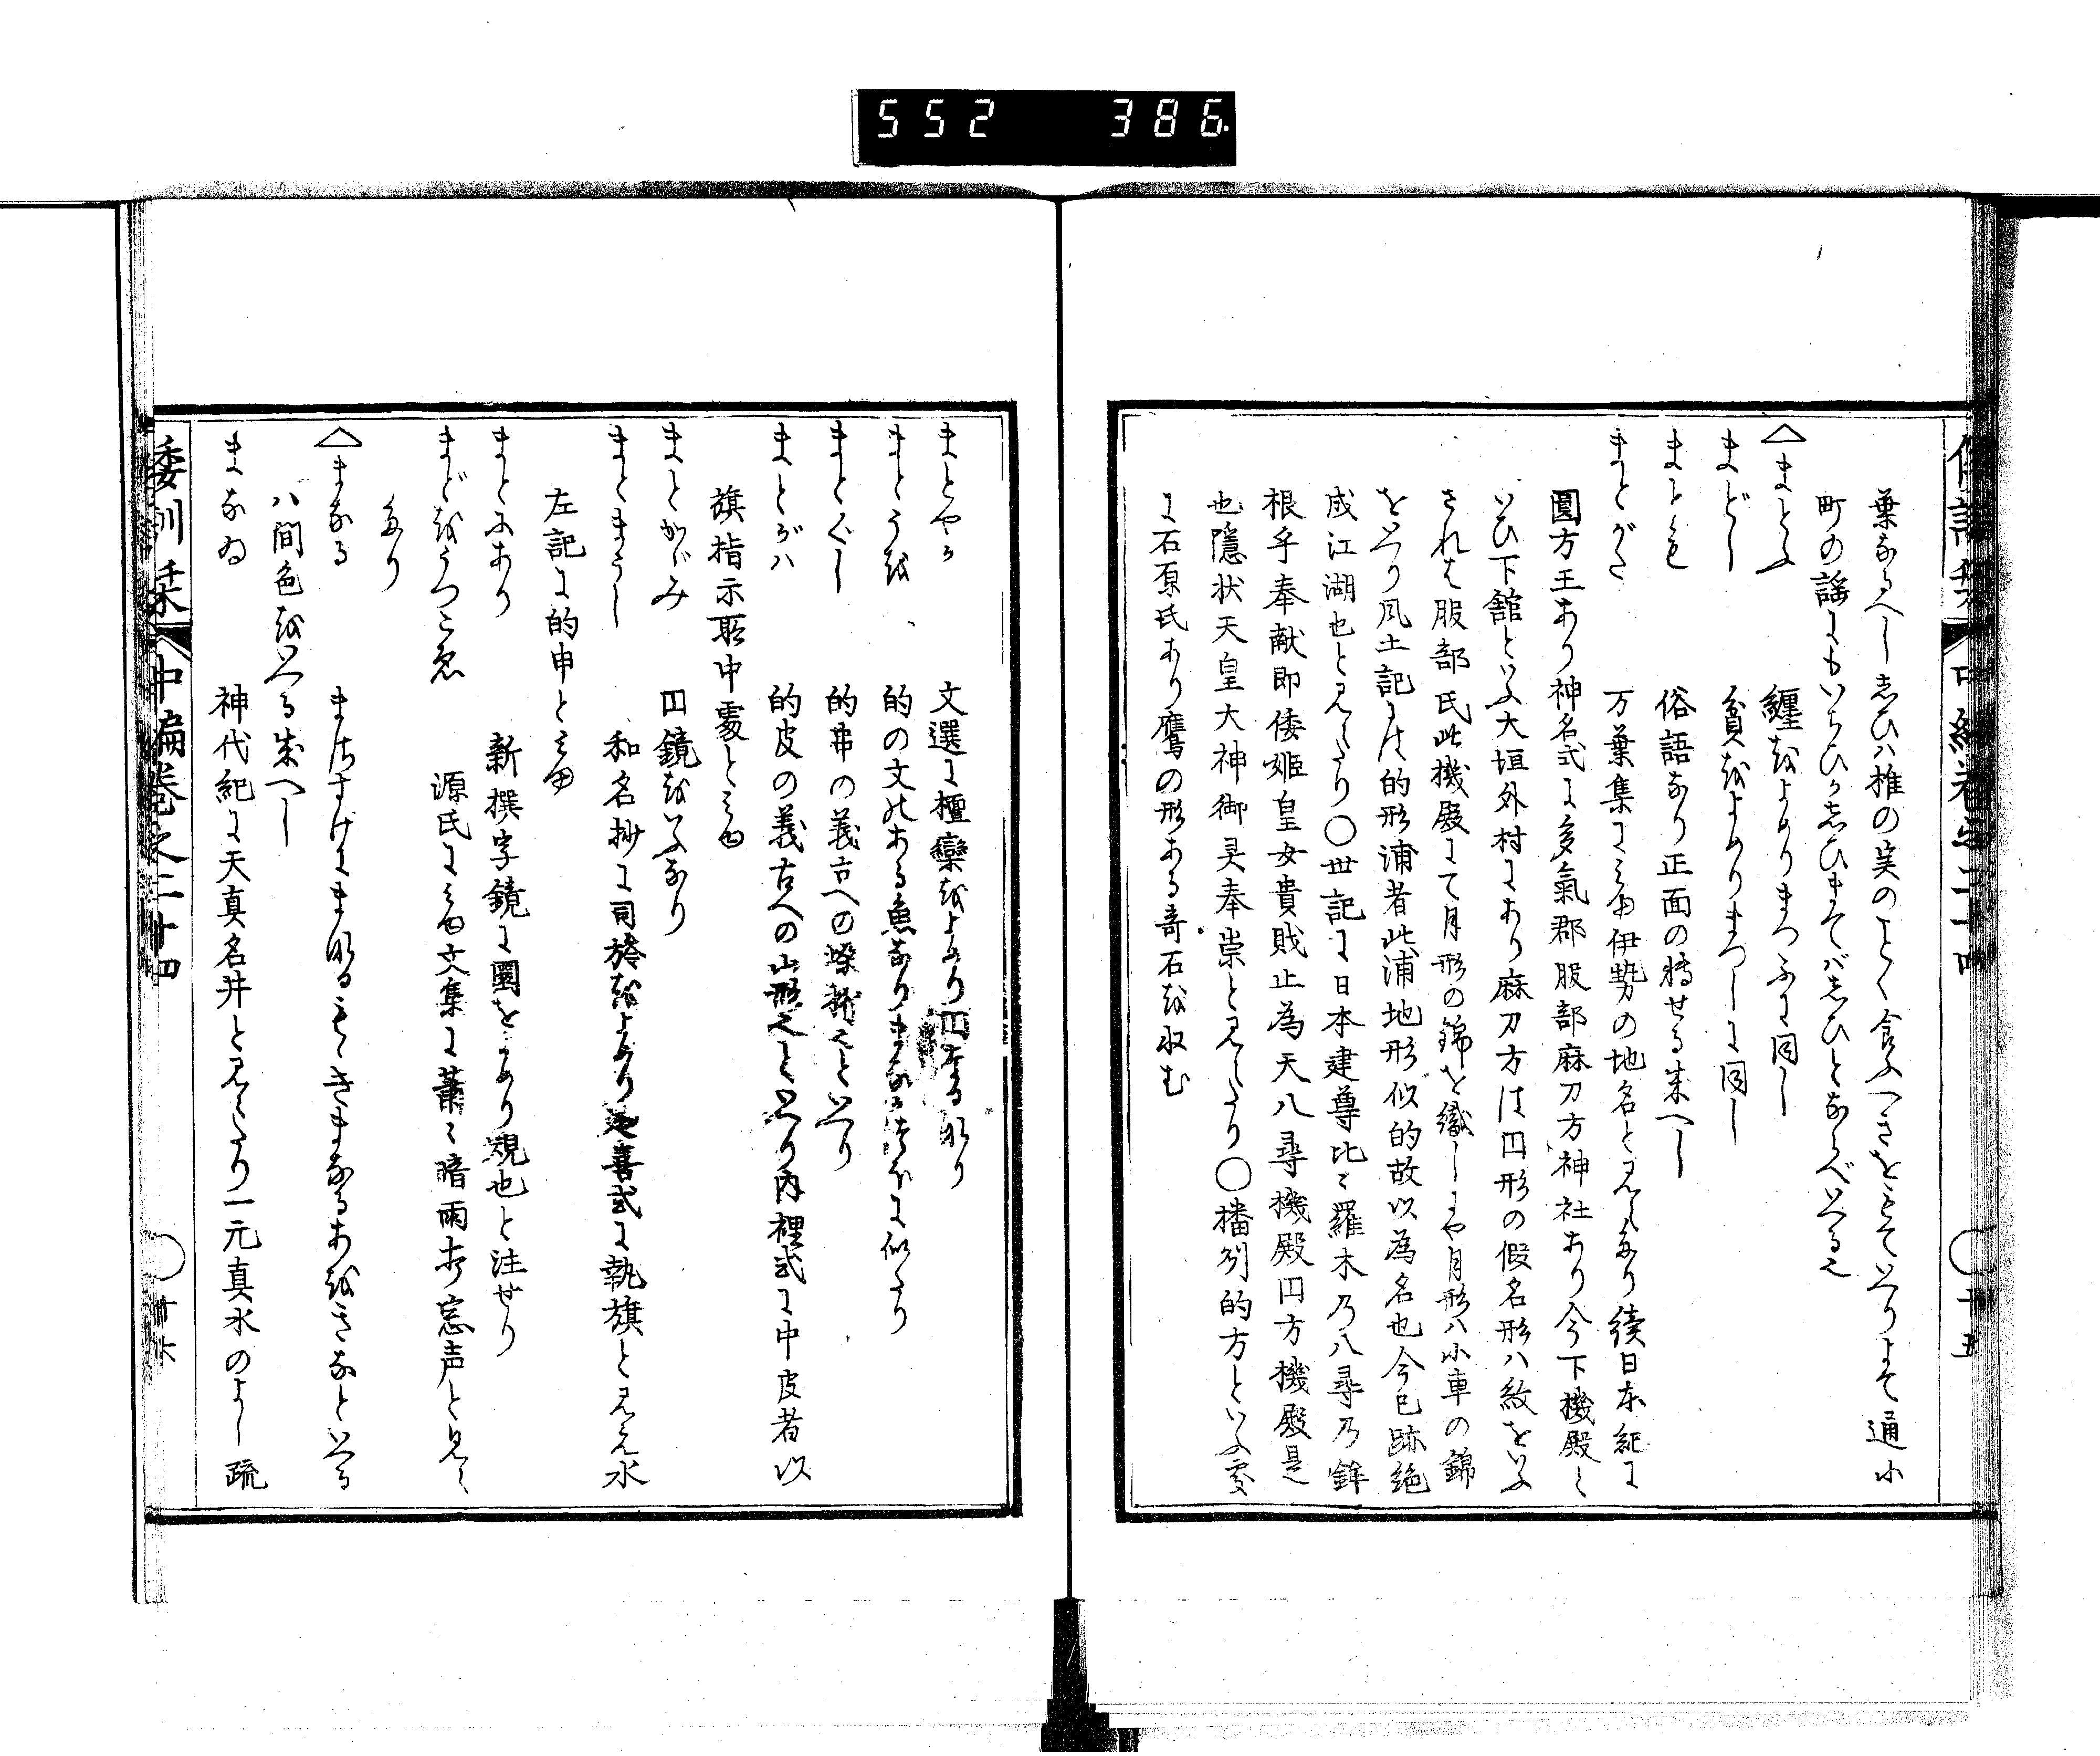 552 386
葉なるへしゑひハ椎の実のことく食ふへきをもていへりよて通小
町の謡にもいちひかしひまてばしひとならべいへる也
△まとふ 纏をよめりまつふに同し
まどし 貧をよめりまつしに同し
まとも 俗語なり正面の轉せる成へし
まとがた 万葉集にみゆ伊勢の地名と見えたり続日本紀に
圓方王あり神名式に多氣郡服部麻刀方神社あり今下機殿と
いひ下舘といふ大垣外村にあり麻刀方は円形の假名形ハ紋をいふ
されは服部氏此機殿にて月形の錦を織しにや月形ハ小車の錦
をいへり風土記には的形浦者此浦地形似的故以為名也今已跡絶
成江湖也と見えたり〇世記に日本建尊比々羅木乃八尋乃鉾
根乎奉献即倭姫皇女貴賎止為天八尋機殿円方機殿是
也隠状天皇大神御灵奉崇と見えたり〇播刕的方といふ處
に石原氏あり鷹の形ある奇石を収む
倭訓栞 中編巻之二十四 〇十五
まとやか 文選に檀欒をよめり円なる也
まとうを 的の文ある魚なり
まとぐし 的串の義古への
まとがハ 的皮の義古への山形也といへり内裡式に中皮者以
旗指示取中處とみゆ
まとかがみ 円鏡をいふなり
まとまうし 和名抄に司旍をよめり延喜式に執旗と見え水
左記に的申とみゆ
まとゐあり 新撰字鏡に圜をよめり規也と注せり
まどをうつこゑ 源氏にみゆ文集に蕭々暗雨打窓声と見え
たり
△まなる
ハ間色をいへる成へし
まなゐ 神代紀に天真名井と見えたり一元真水のよし疏
倭訓栞 中編巻之二十四 〇十六